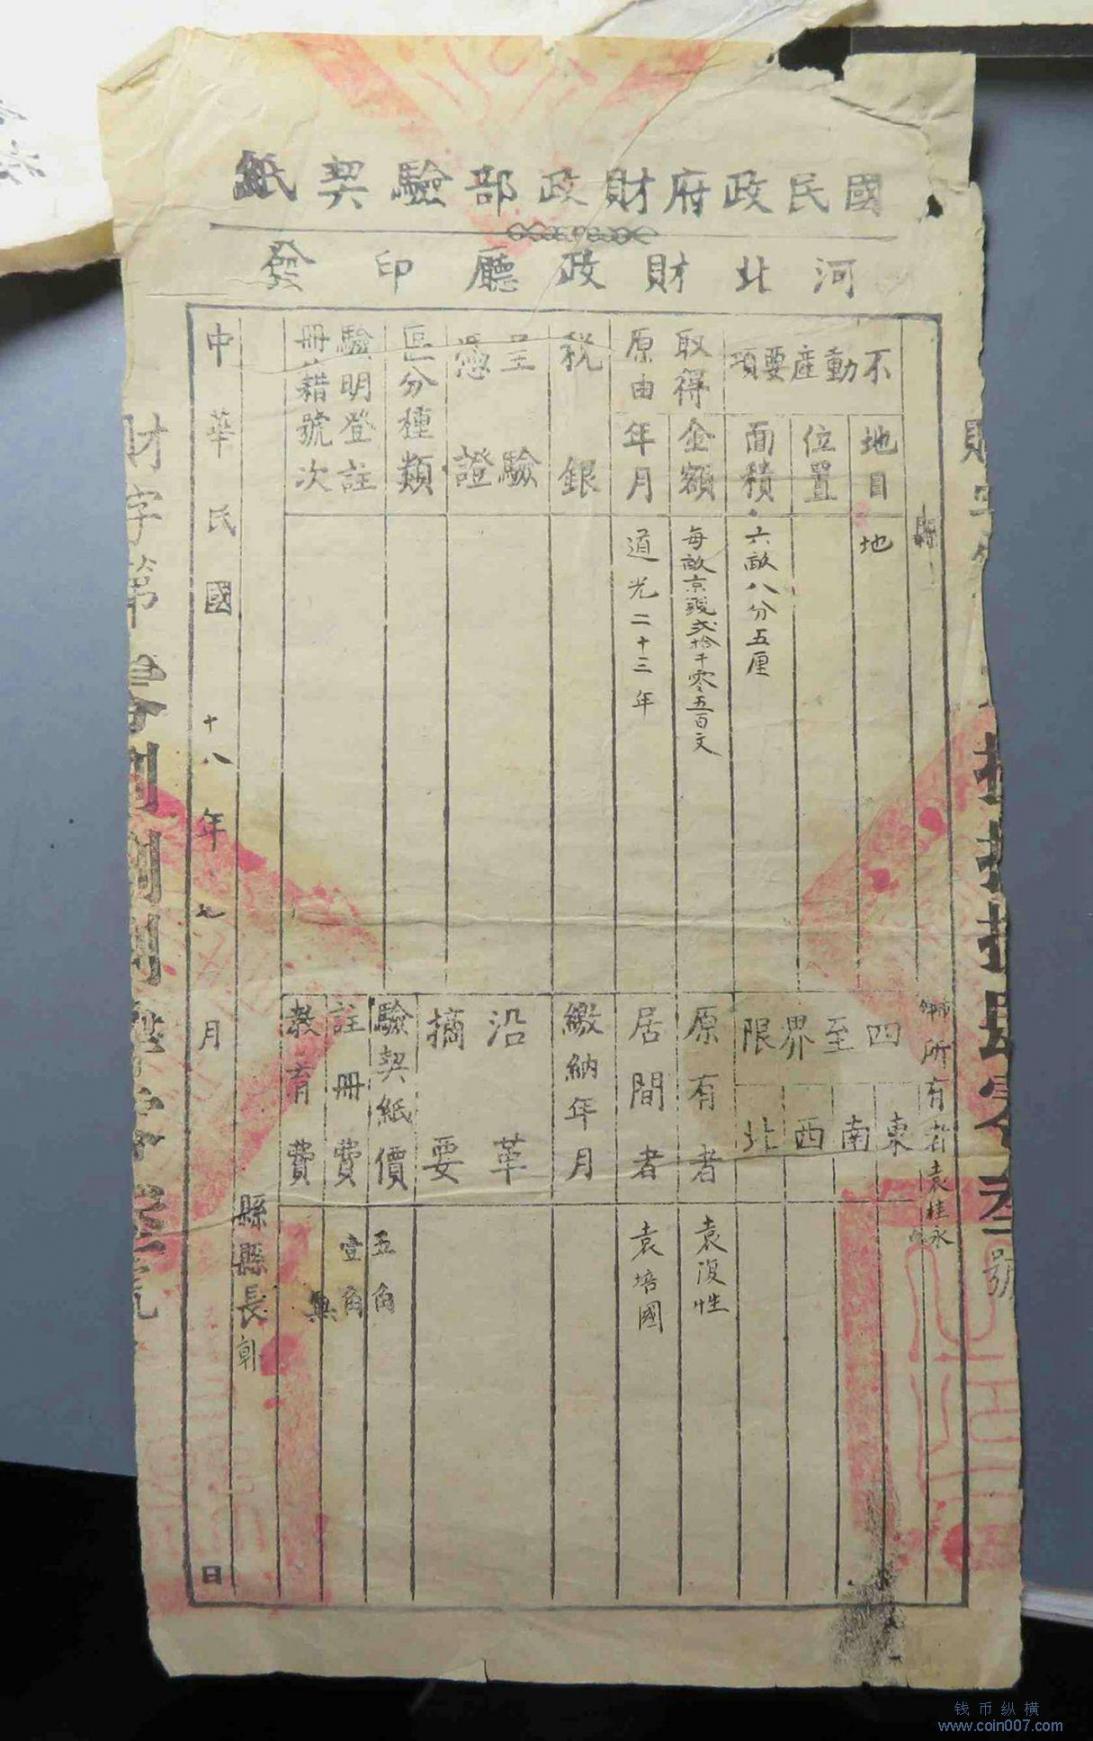 國民政府財政部驗契紙
河北財政廳印發
縣
所有者袁桂永
不動產要項
地目
地
位置
面積
六畝八分五厘
取得原由
金額
每畝京錢弍拾千零五百文
年月
道光二十三年
稅銀
呈驗憑證
區分種類
驗明登註冊籍號次
四至界限
東
南
西
北
原有者
袁復性
居間者
袁培國
繳納年月
沿革摘要
驗契紙價
五角
註冊費
壹角
教育費
縣縣長
中華民國十八年七月日
財字第
號
钱币纵横
www.coin007.com